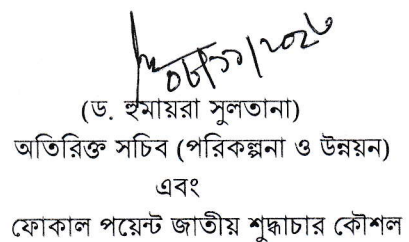 (ড. হুমায়রা সুলতানা)
অতিরিক্ত সচিব (পরিকল্পনা ও উন্নয়ন)
এবং
ফোকাল পয়েন্ট জাতীয় শুদ্ধাচার কৌশল